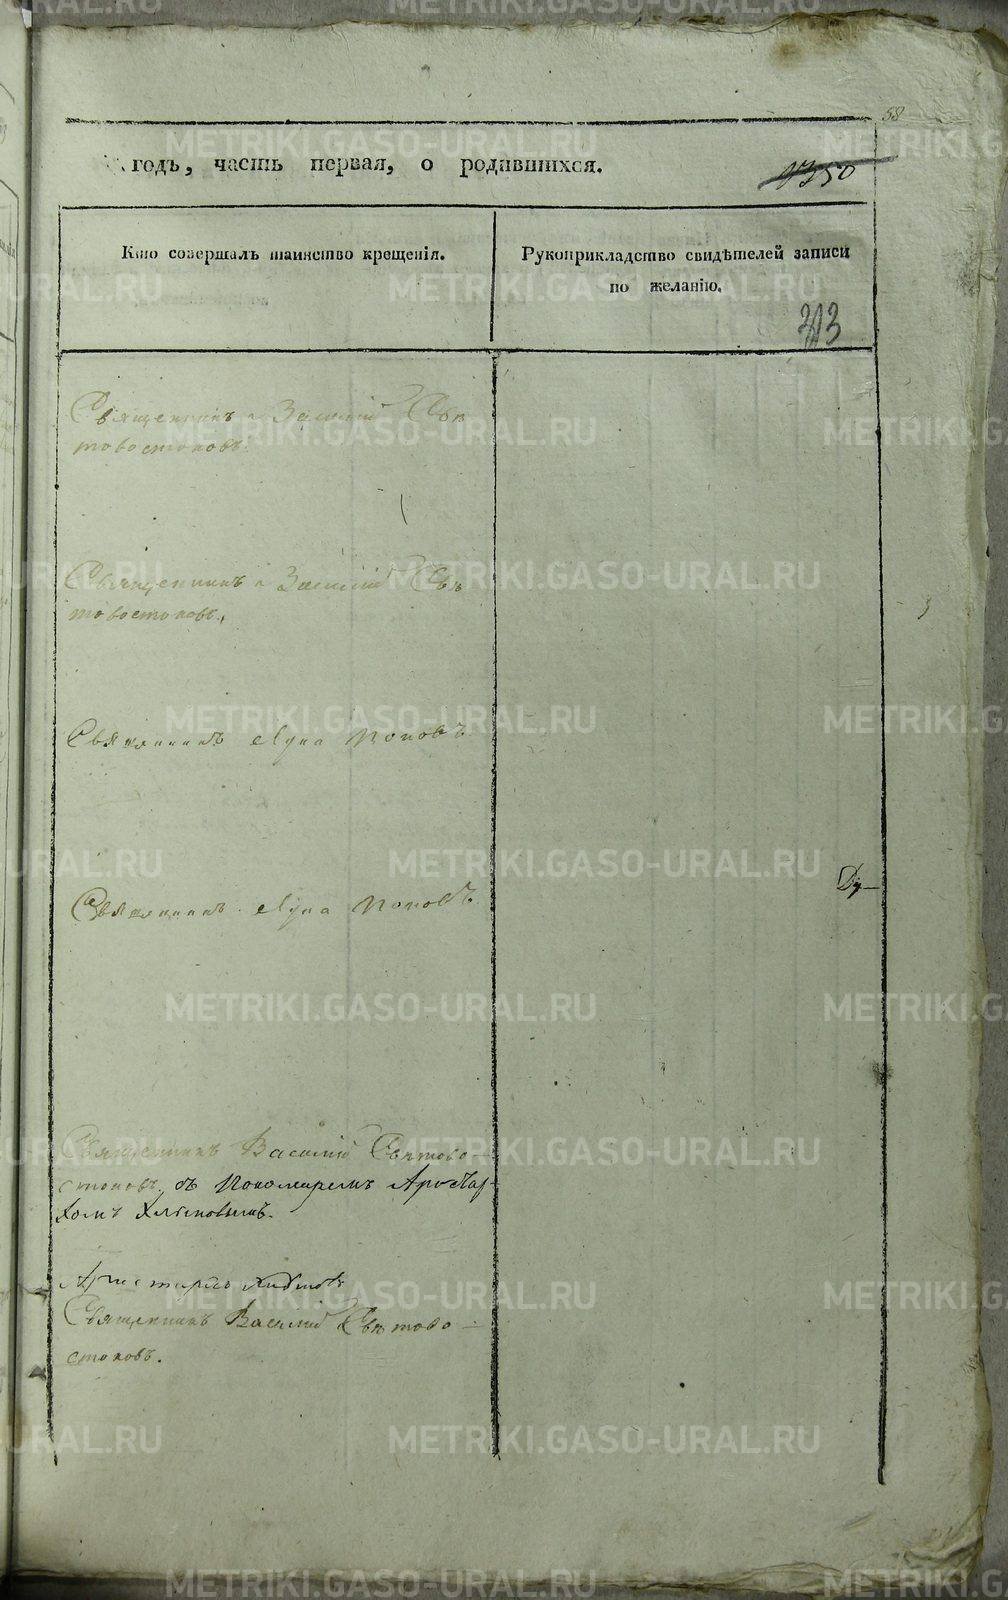 58
годъ, часть первая, о родившихся.
1350
Кто совершалъ таинство крещенія.
Рукоприкладство свидѣтелей записи
по желанію.
313
Священникъ Василій Свѣ
товостоковъ.
Священникъ Василій Свѣ
товостоковъ.
Священникъ Лука Поповъ
Священникъ Лука Поповъ.
Священникъ Василій Свѣтово-
стоковъ, съ Пономаремъ Аристар-
хомъ
Священникъ Василій Свѣтово-
стоковъ.
METRIKI.GASO-URAL.RU